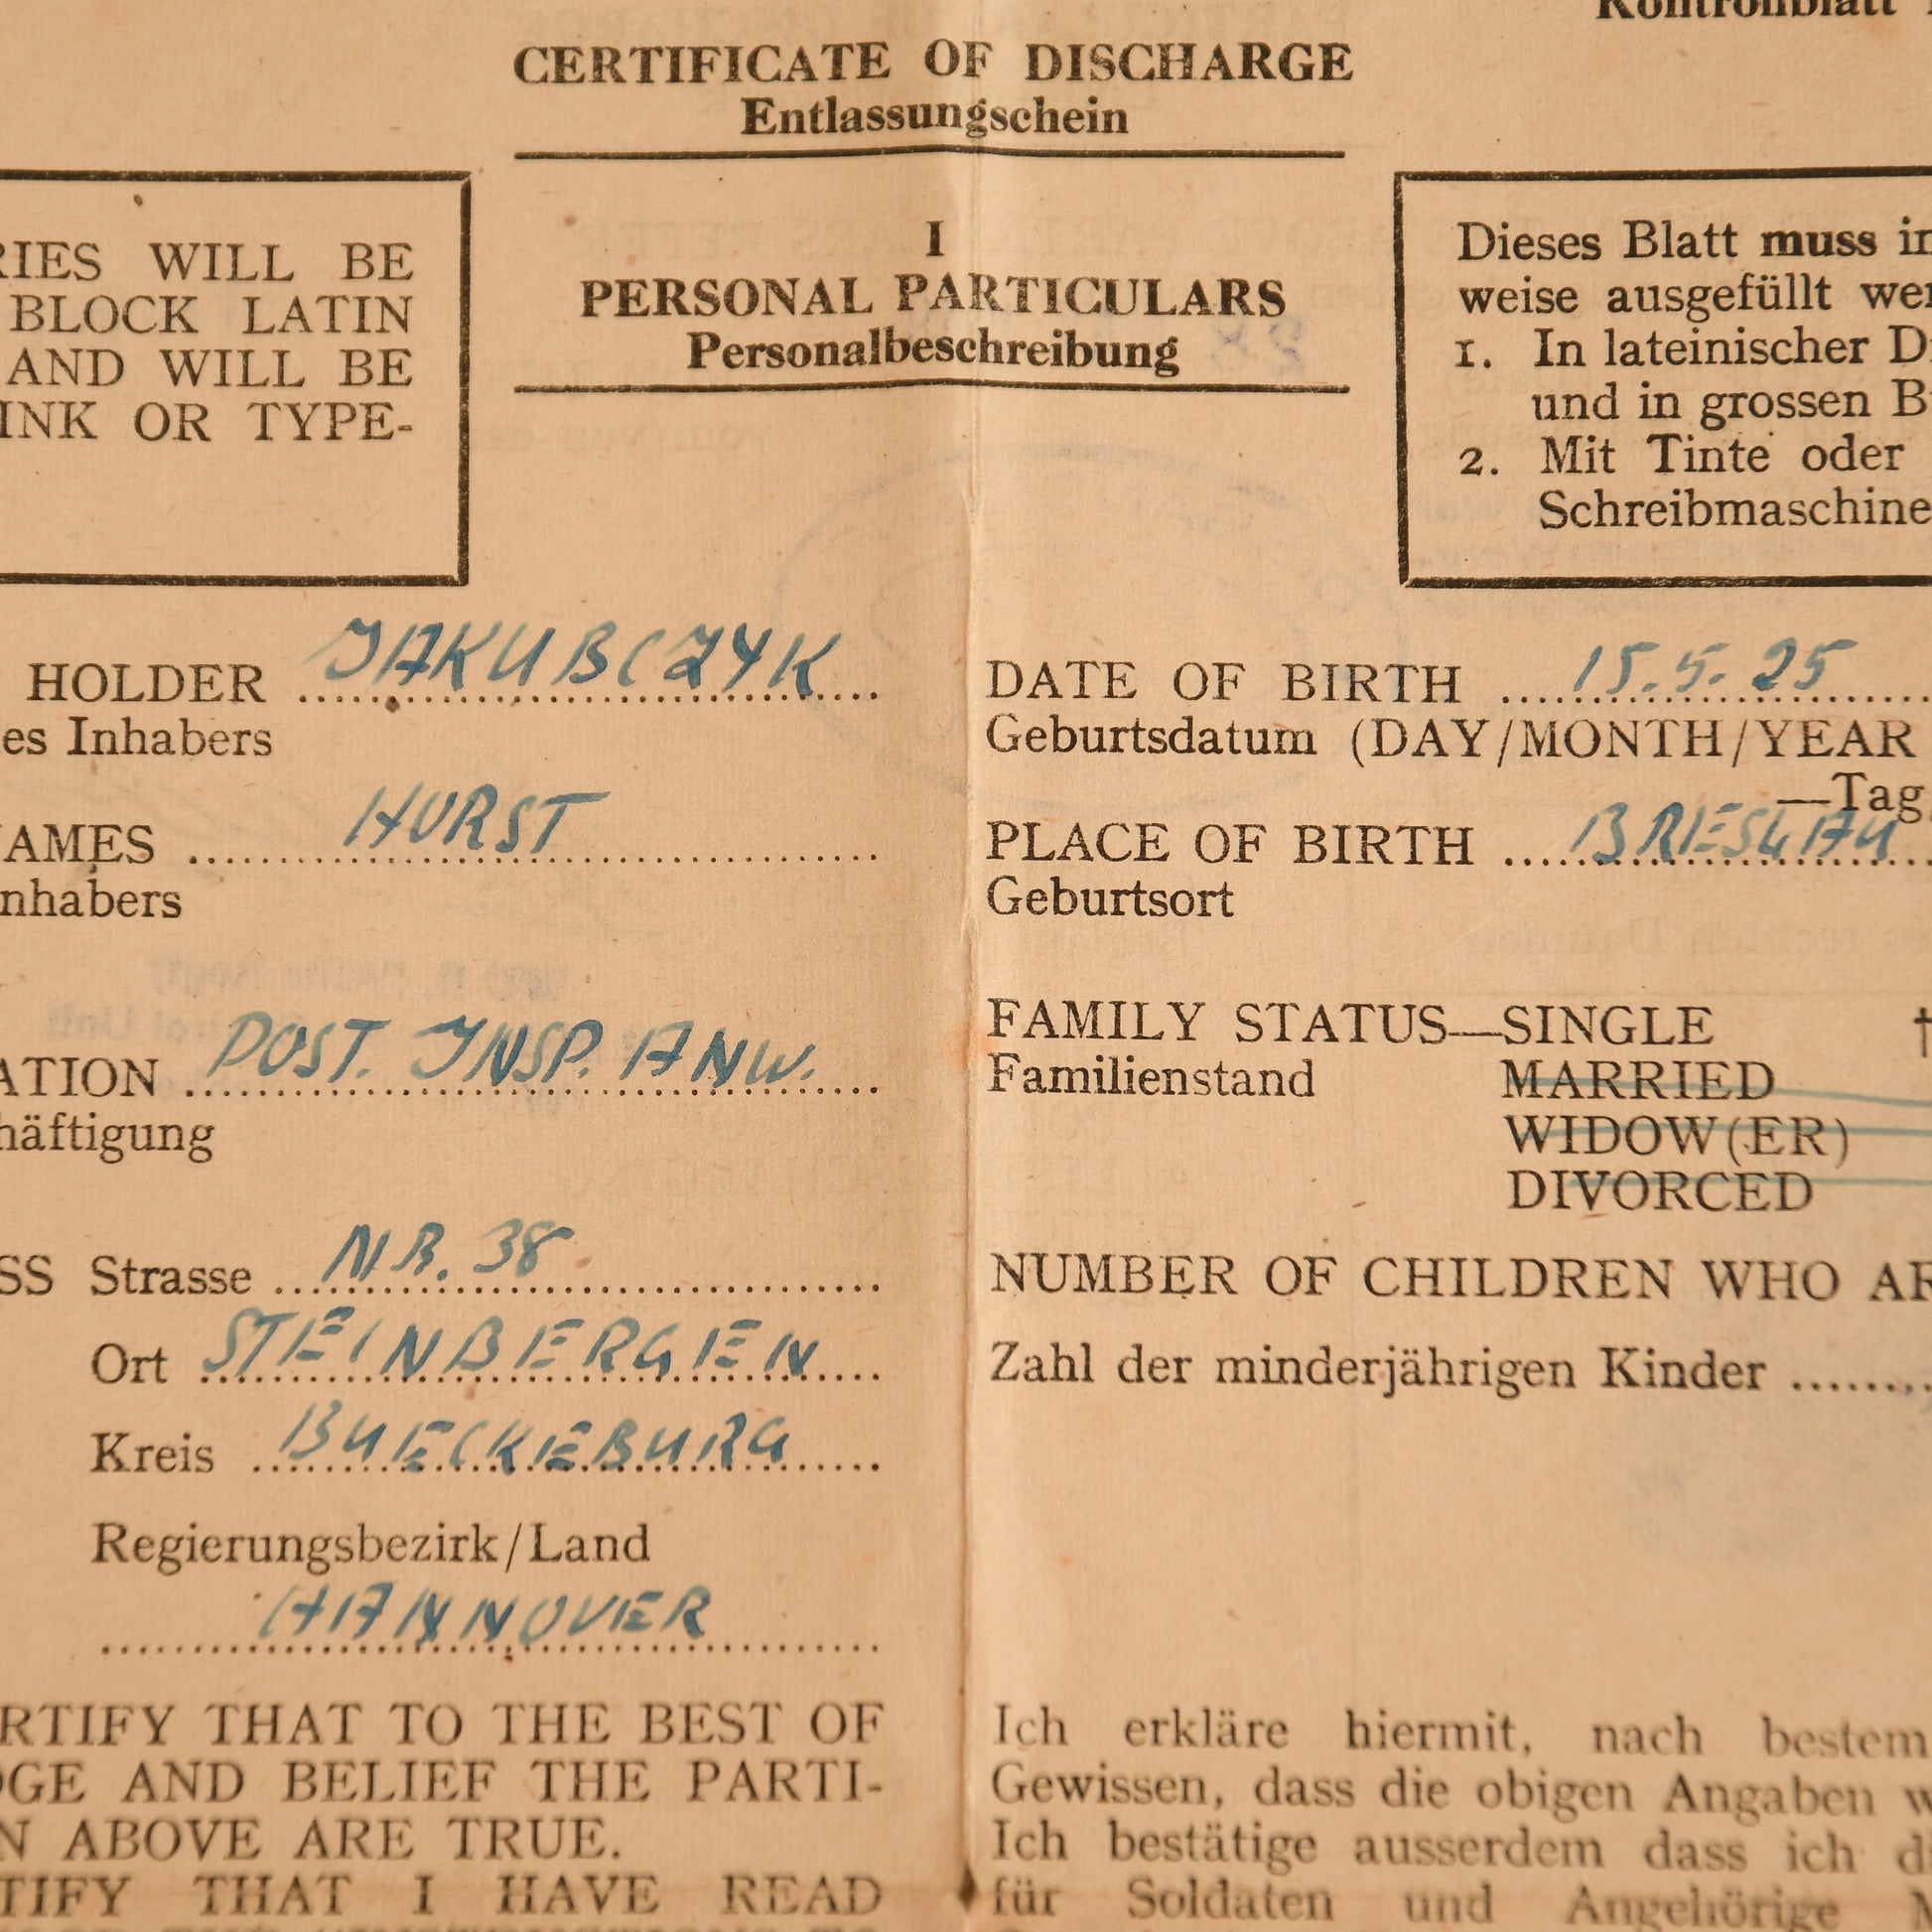 Kontrollblatt
CERTIFICATE OF DISCHARGE
Entlassungschein
RIES WILL BE
BLOCK LATIN
AND WILL BE
INK OR TYPE-
I
PERSONAL PARTICULARS
Personalbeschreibung
Dieses Blatt muss in
weise ausgefüllt wer
1. In lateinischer D
und in grossen B
2. Mit Tinte oder
Schreibmaschine
HOLDER JAKUBCZYK
es Inhabers
AMES HORST
nhabers
ATION POST. INSP. ANW.
häftigung
SS Strasse NR. 38
Ort STEINBERGEN
Kreis BUECKEBURG
Regierungsbezirk/Land
HANNOVER
RTIFY THAT TO THE BEST OF
GE AND BELIEF THE PARTI-
N ABOVE ARE TRUE.
TIFY THAT I HAVE READ
DATE OF BIRTH 15.5.25
Geburtsdatum (DAY/MONTH/YEAR
—Tag
PLACE OF BIRTH BRESLAU
Geburtsort
FAMILY STATUS—SINGLE †
Familienstand MARRIED
WIDOW(ER)
DIVORCED
NUMBER OF CHILDREN WHO AR
Zahl der minderjährigen Kinder
Ich erkläre hiermit, nach bestem
Gewissen, dass die obigen Angaben w
Ich bestätige ausserdem dass ich d
für Soldaten und Angehörige